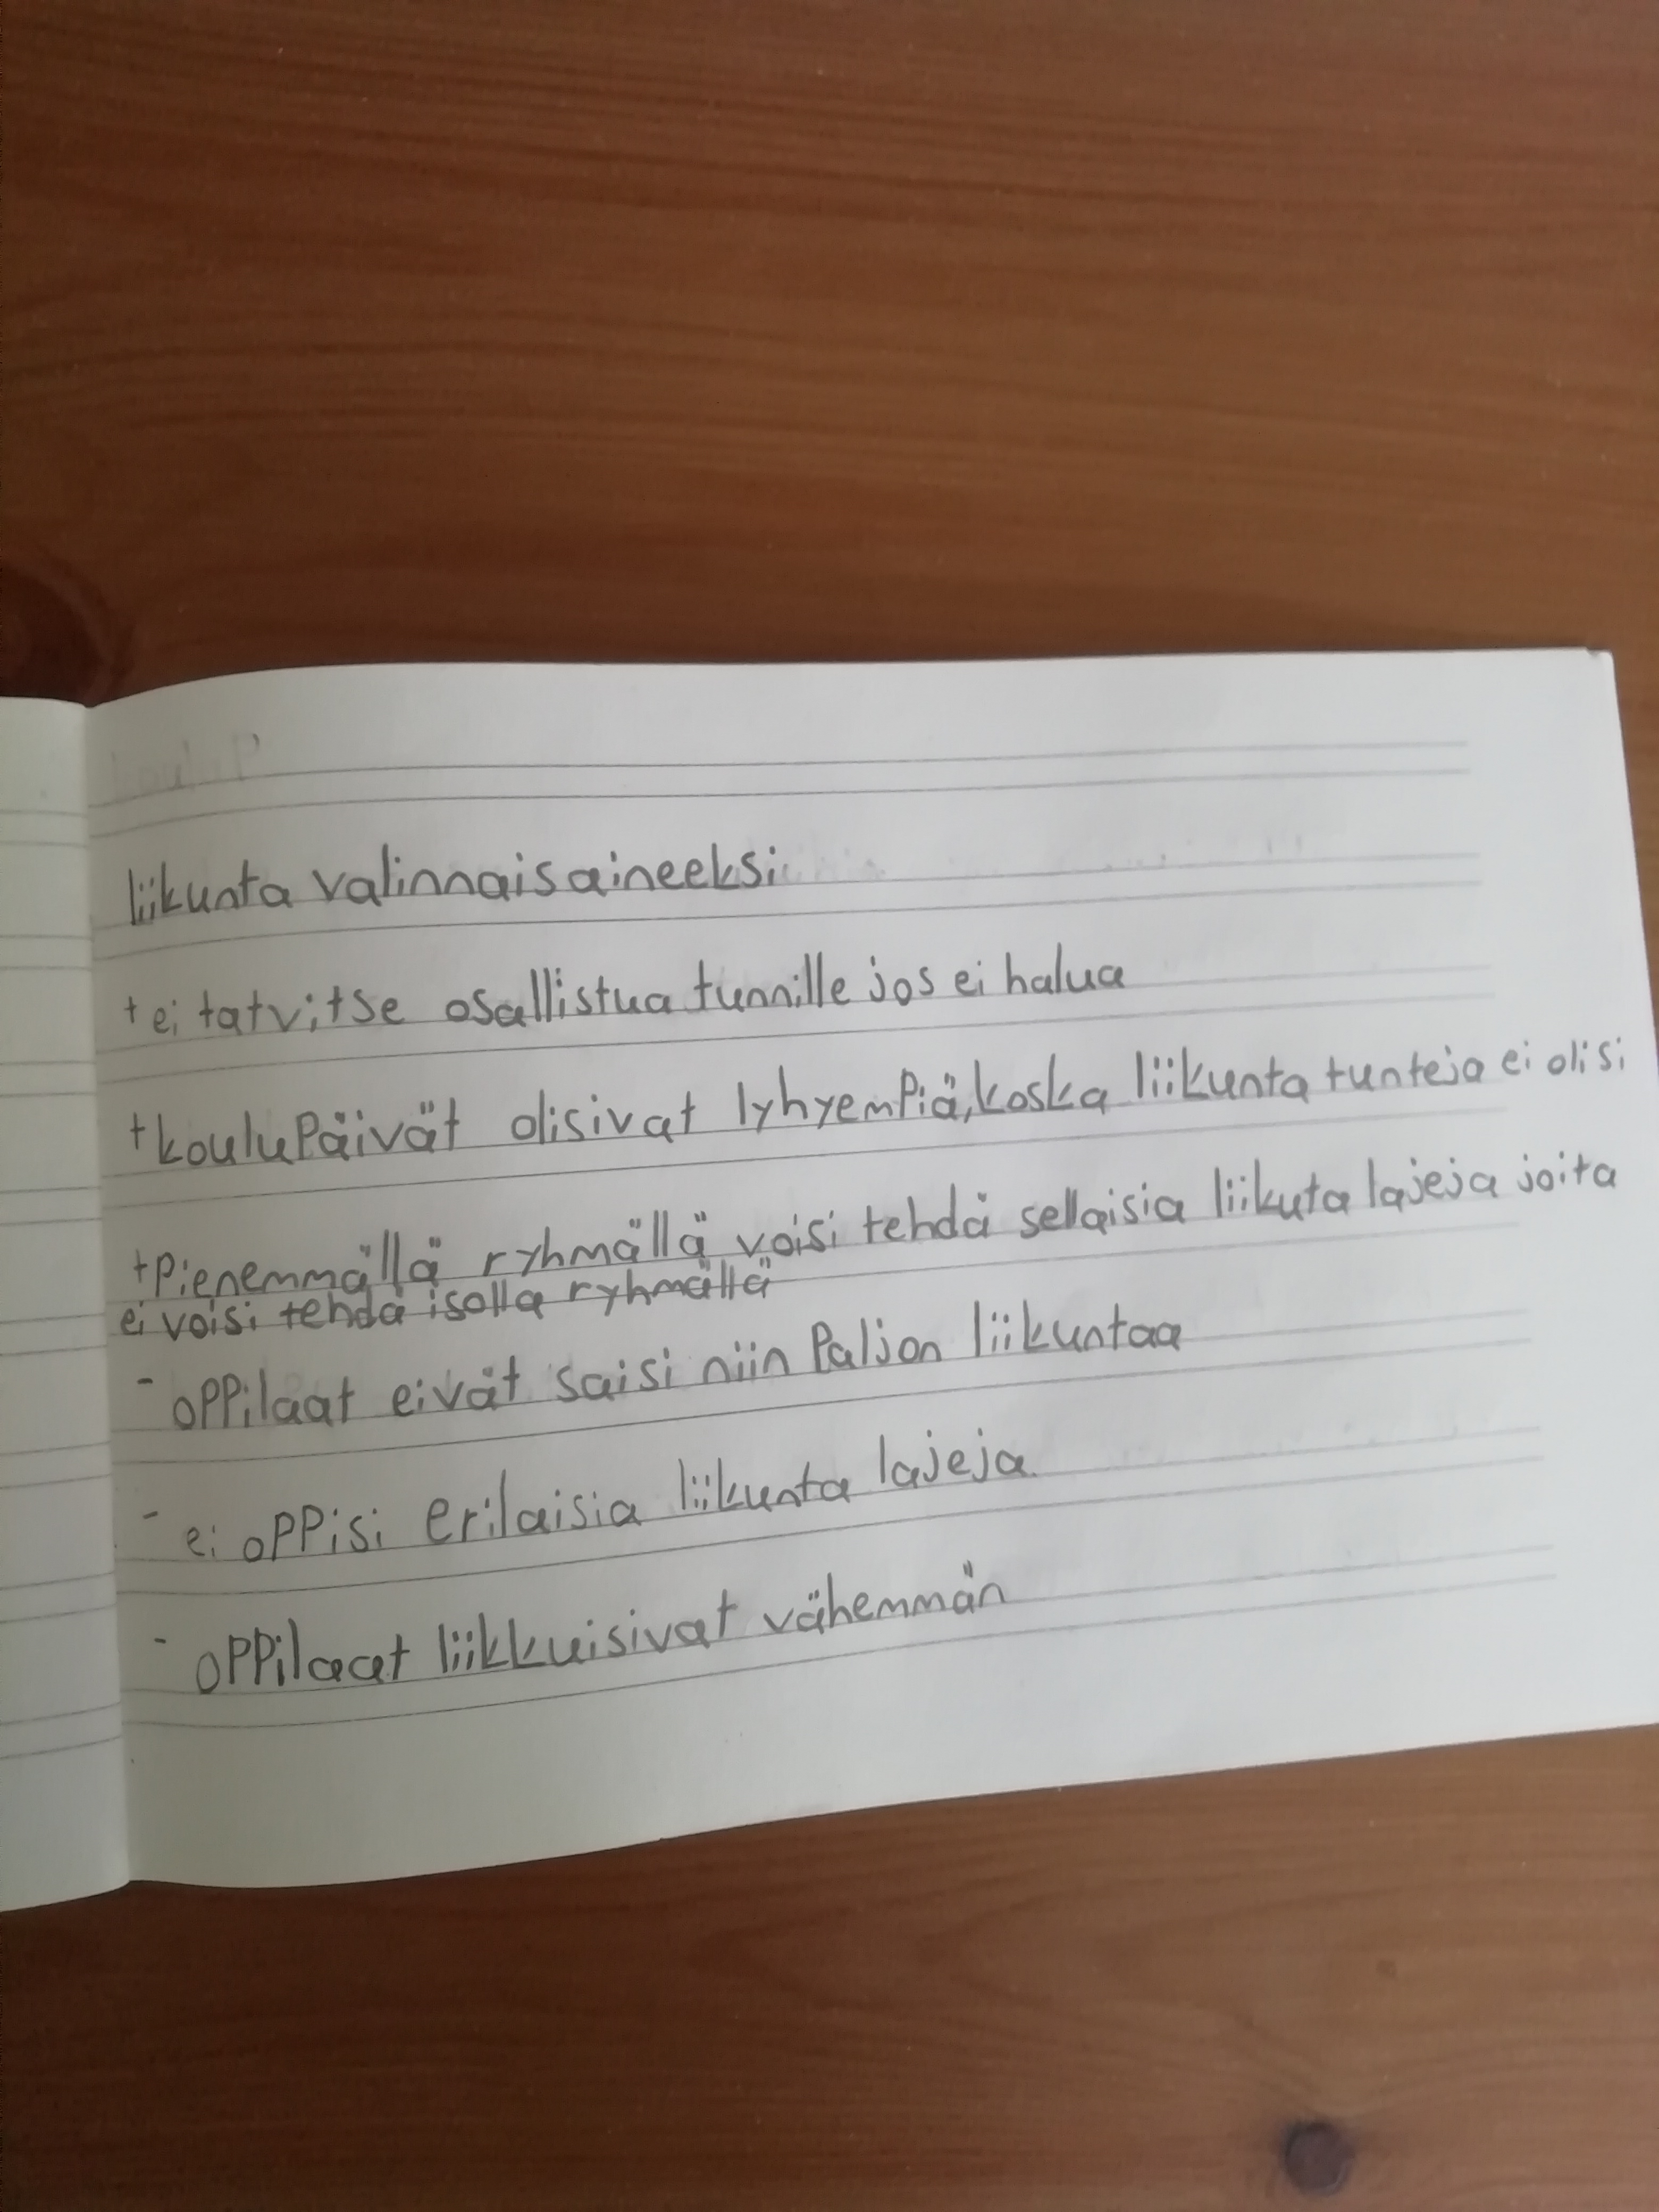 liikunta valinnaisaineeksi
+ ei tatvitse osallistua tunnille jos ei halua
+koulupäivät olisivat lyhyempiä, koska liikunta tunteja ei olisi
+pienemmällä ryhmällä voisi tehdä sellaisia liikuta lajeja joita
ei voisi tehdä isolla ryhmällä
- oppilaat eivät saisi niin paljon liikuntaa
- ei oppisi erilaisia liikunta lajeja.
- oppilaat liikkuisivat vähemmän